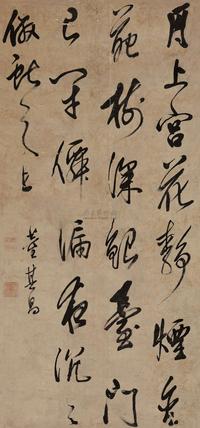 月上宮花靜煙含
苑樹深銀臺門
已閉僊漏夜沉〻
倣獻之
董其昌